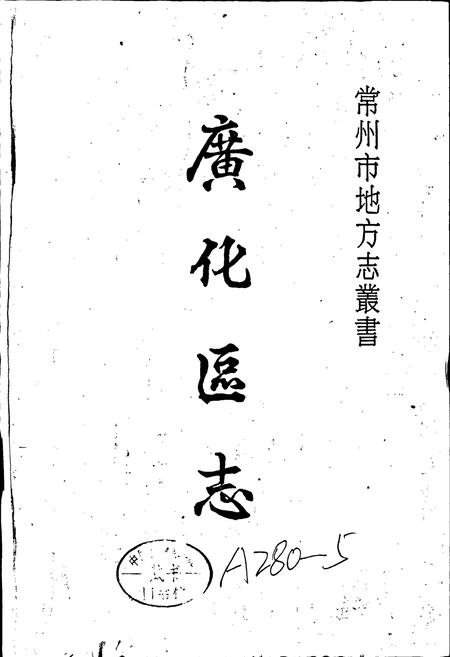 常州市地方志叢書
廣化區志
A280-5
藏书